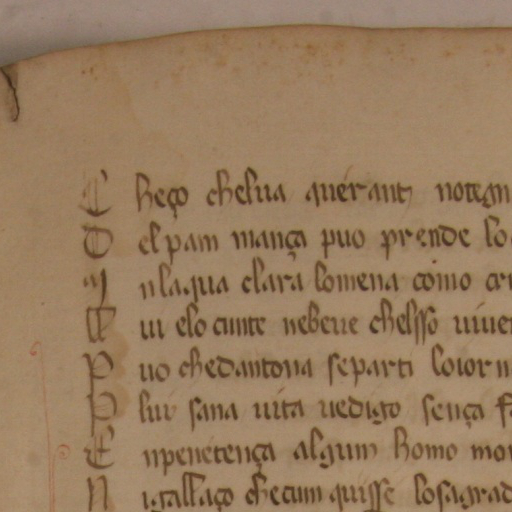 C heço chelua querant notegn
D el pam mança puo prende lo
I nlaqua clara lomena como cri
Il ui elo cunte nebeue chelsso uiuer
P uo chedantona se parti loiorn
P lui sana uita uedigo sença fa
E npenetença algum homo mor
N igallaço checum quisse losagrad